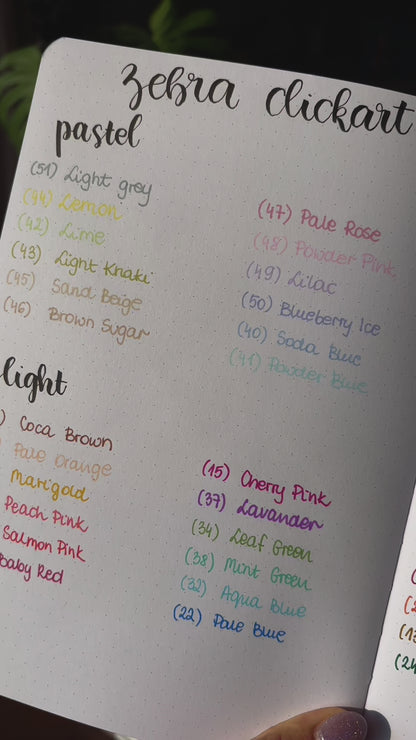 zebra clickart
pastel
(51) Light grey
(44) Lemon
(42) Lime
(43) Light Khaki
(45) Sand Beige
(46) Brown Sugar
(47) Pale Rose
(48) Powder Pink
(49) Lilac
(50) Blueberry Ice
(40) Soda Blue
(41) Powder Blue
light
) Coca Brown
Pale Orange
Marigold
Peach Pink
Salmon Pink
Baby Red
(15) Cherry Pink
(37) Lavander
(34) Leaf Green
(38) Mint Green
(32) Aqua Blue
(22) Pale Blue
(2
(13
(24